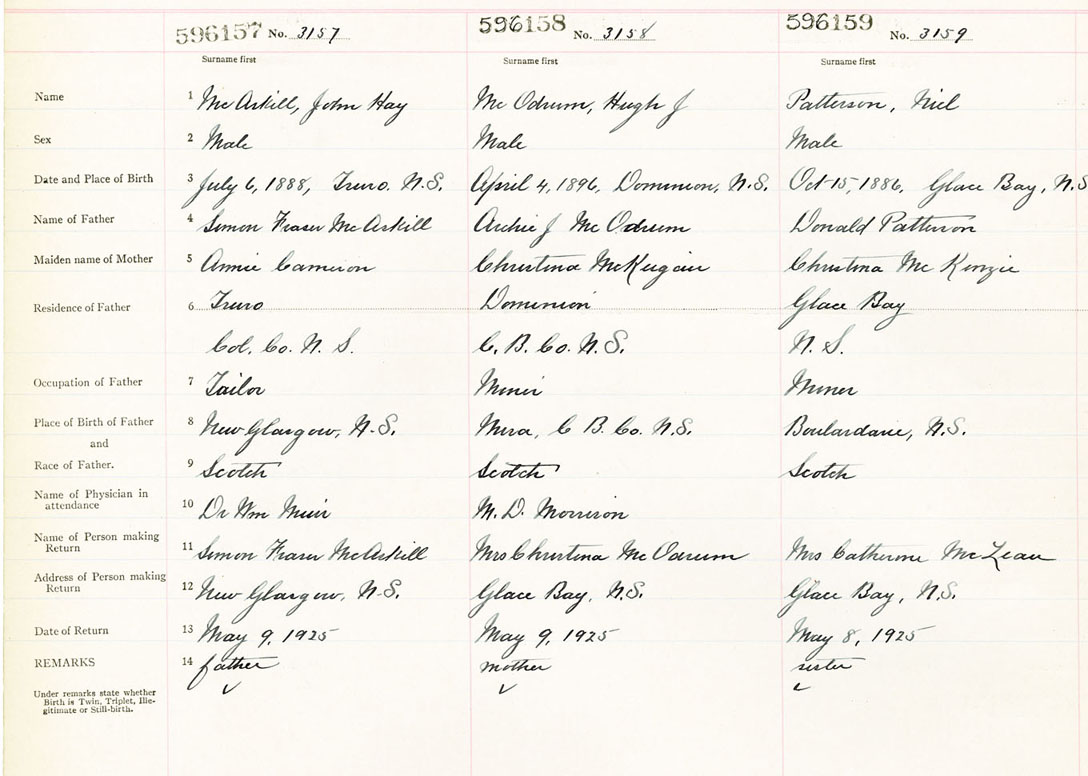 596157 No. 3157 596158 No. 3158 596159 No. 3159
Surname first Surname first Surname first
Name 1 McAskill, John Hay Mc Odrum, Hugh J Patterson, Niel
Sex 2 Male Male Male
Date and Place of Birth 3 July 6, 1888, Truro, N.S. April 4, 1896, Dominion, N.S. Oct 15, 1886, Glace Bay, N.S
Name of Father 4 Simon Fraser McAskill Archie J Mc Odrum Donald Patterson
Maiden name of Mother 5 Annie Cameron Christina McKeigan Christina Mc Kenzie
Residence of Father 6 Truro Dominion Glace Bay
Col. Co. N. S. C. B. Co. N.S. N. S.
Occupation of Father 7 Tailor Miner Miner
Place of Birth of Father 8 New Glasgow, N.S. Mira, C B. Co. N.S. Boulardarie, N.S.
and
Race of Father. 9 Scotch Scotch Scotch
Name of Physician in
attendance 10 Dr Wm Muir M. D. Morrison
Name of Person making
Return 11 Simon Fraser McAskill Mrs Christina Mc Odrum Mrs Catherine McLean
Address of Person making
Return 12 New Glasgow, N.S. Glace Bay, N.S. Glace Bay, N.S.
Date of Return 13 May 9, 1925 May 9, 1925 May 8, 1925
REMARKS 14 father mother sister
Under remarks state whether
Birth is Twin, Triplet, Ille-
gitimate or Still-birth.